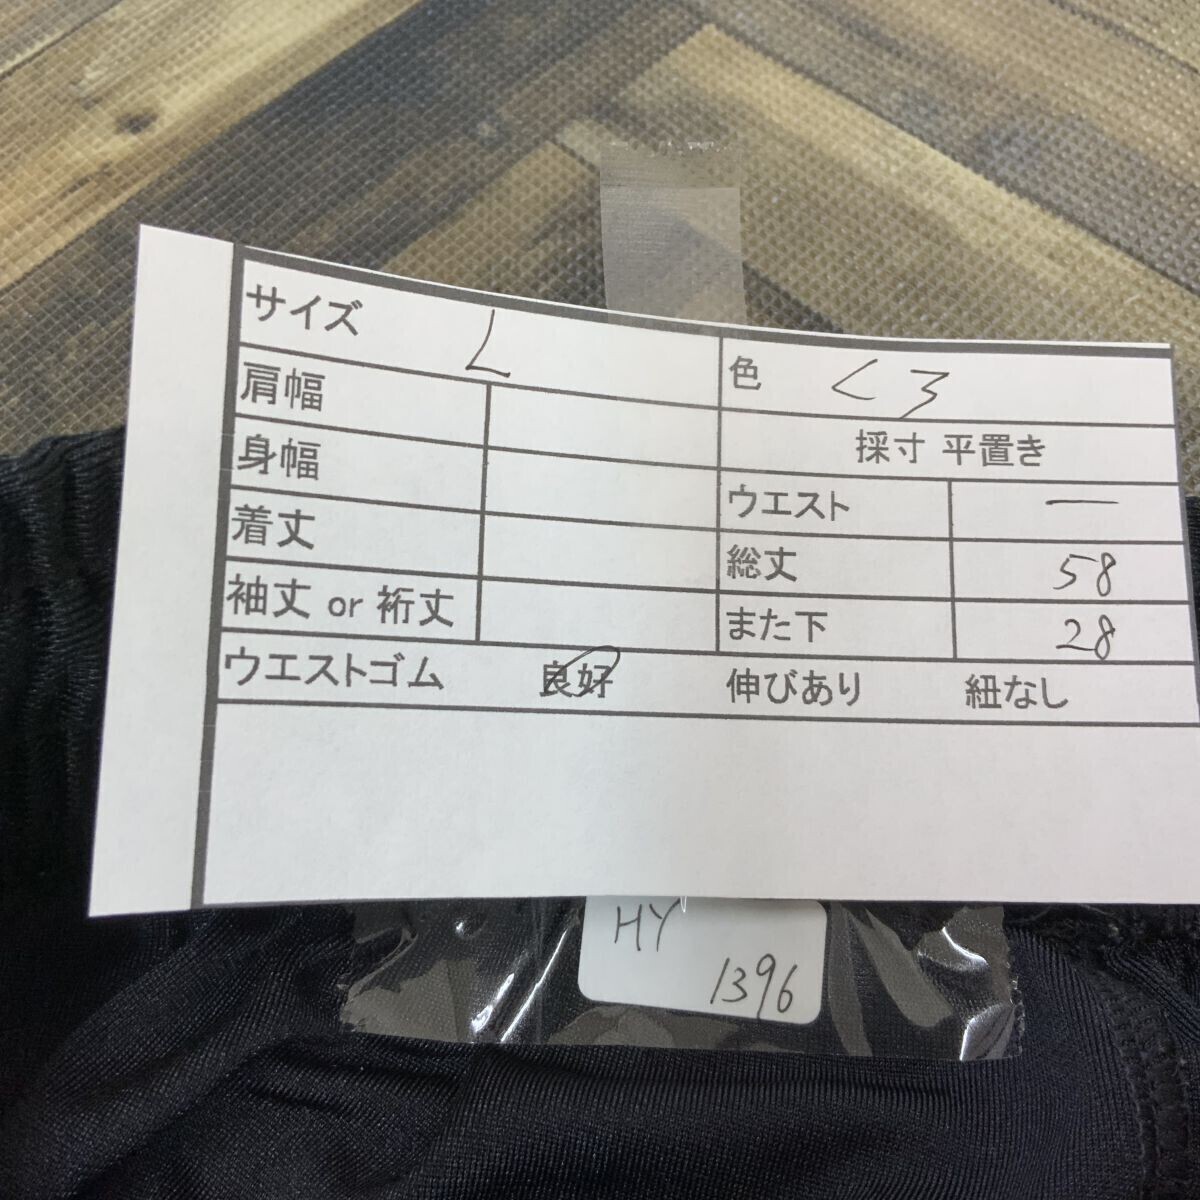 サイズ L
色 くろ
肩幅
採寸 平置き
身幅
ウエスト ー
着丈
総丈 58
袖丈 or 裄丈
また下 28
ウエストゴム 良好 伸びあり 紐なし
HY
1396